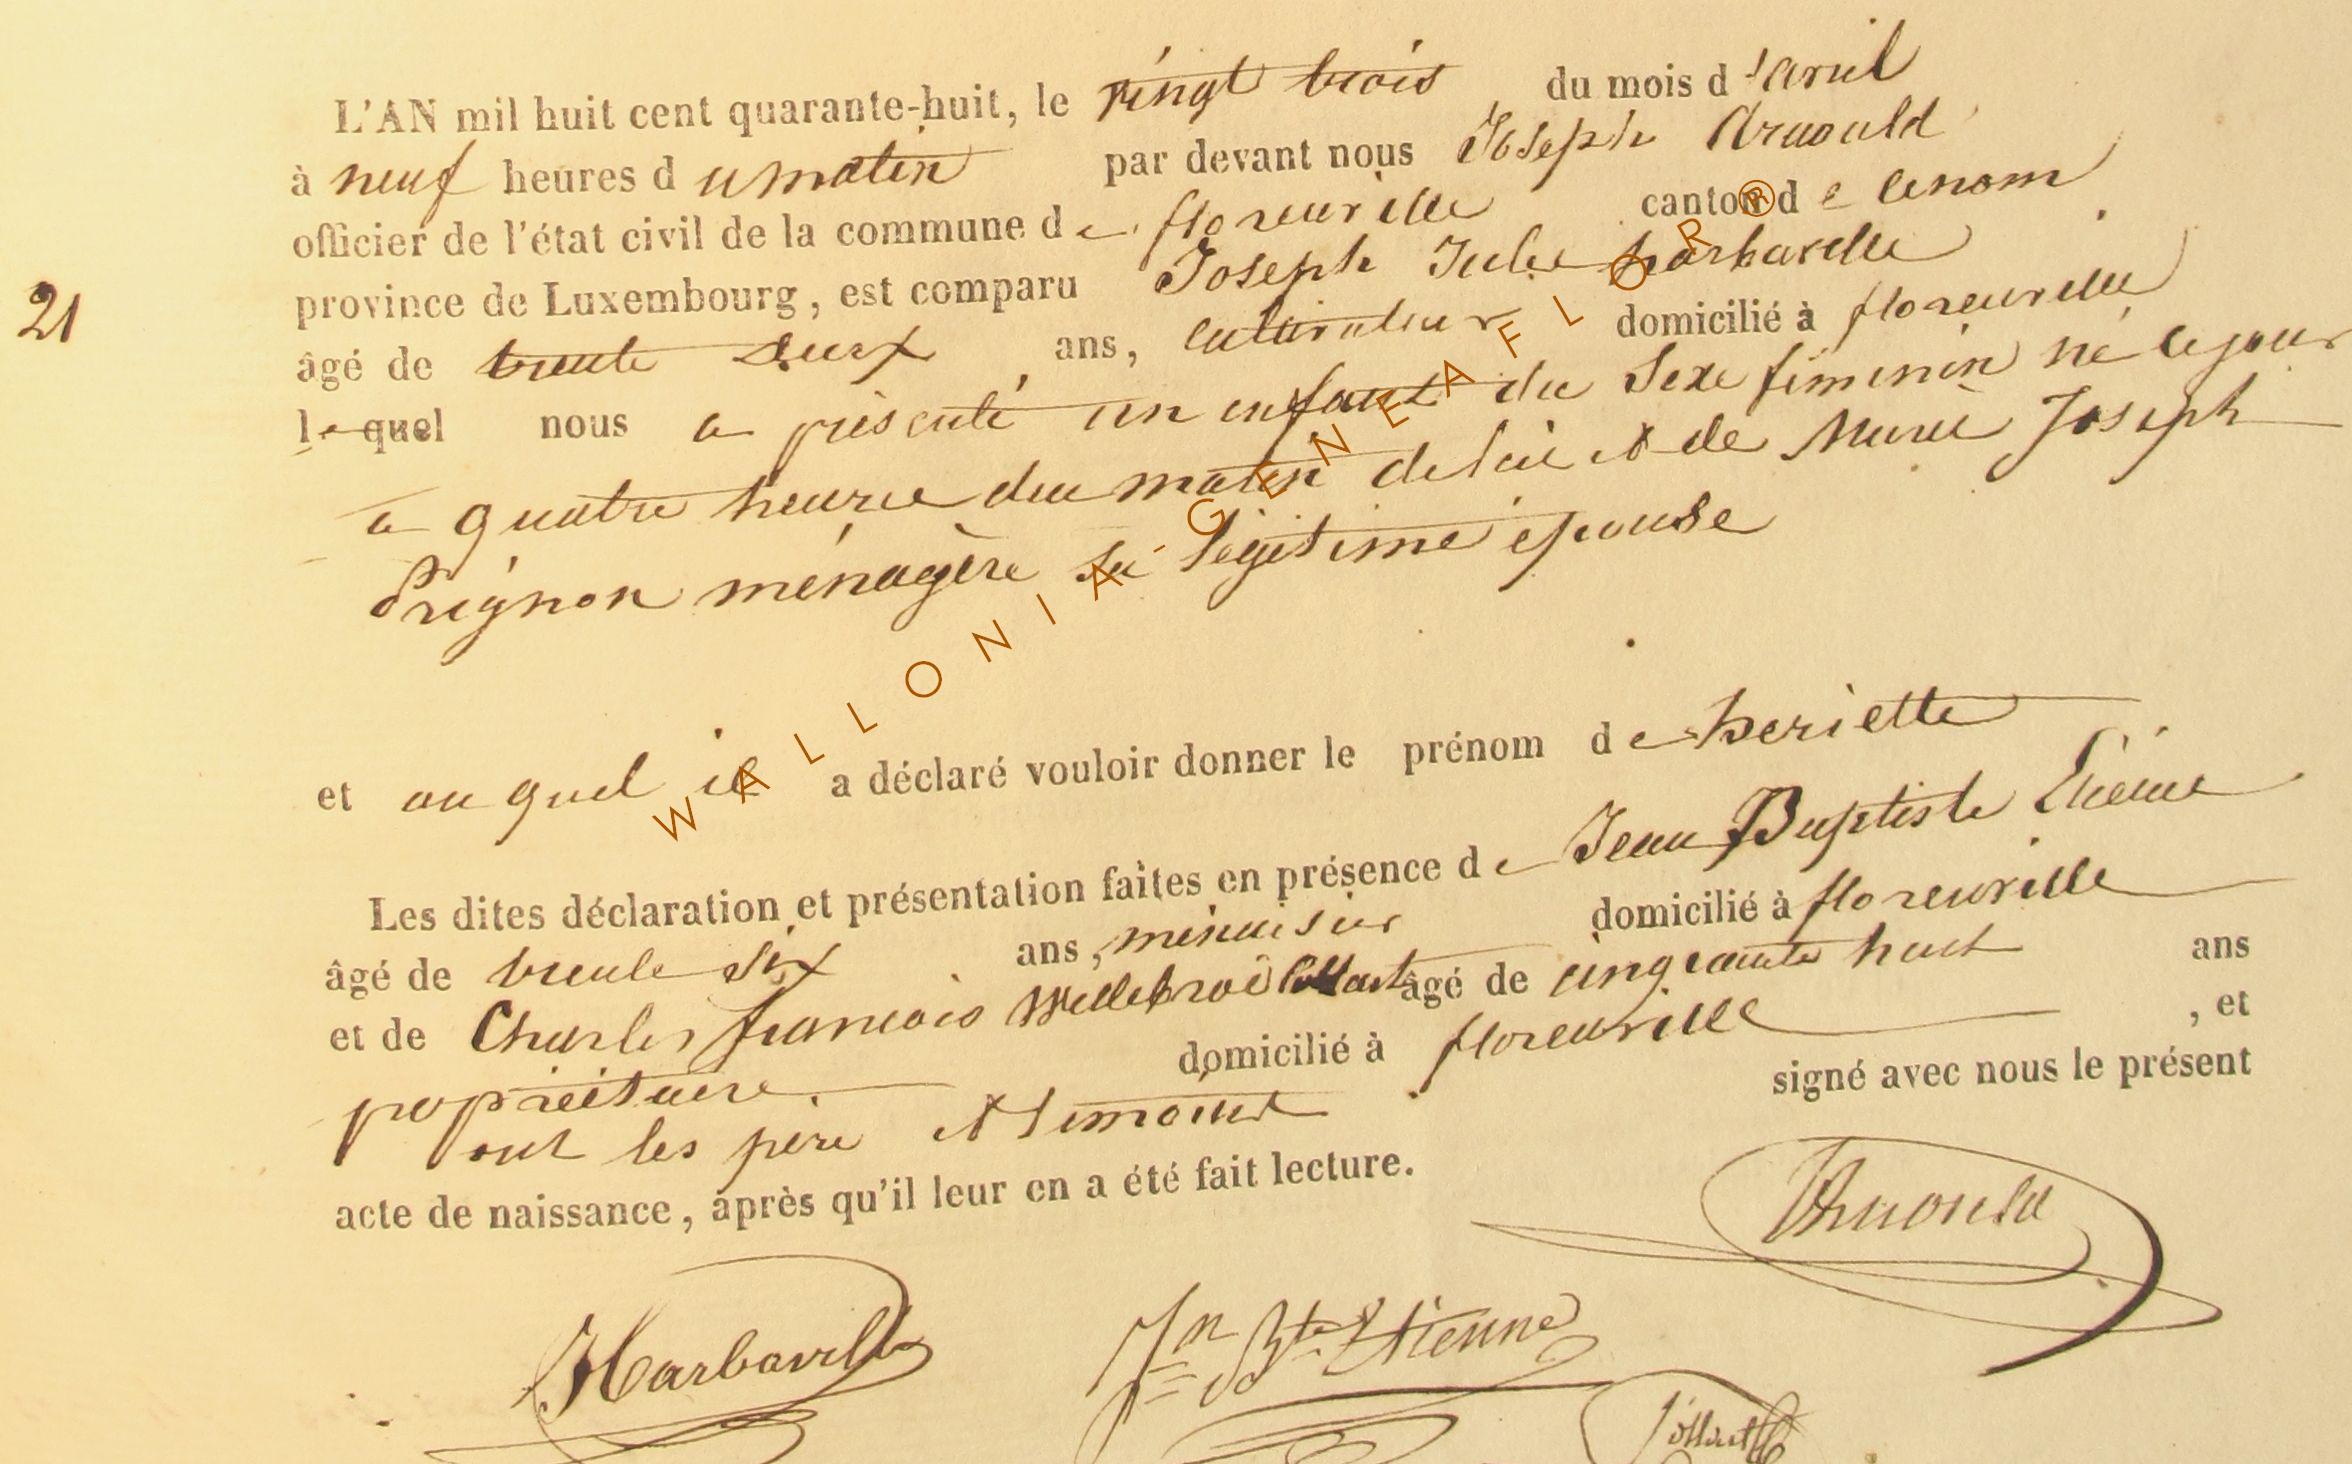 L'AN mil huit cent quarante-huit, le vingt trois du mois d'avril
à neuf heures du matin par devant nous Joseph Arnould
officier de l'état civil de la commune de florenville canton de cenom
province de Luxembourg, est comparu Joseph Jules harbaville
21
âgé de trente deux ans, cultivateur domicilié à florenville
lequel nous a présenté un enfant du Sexe féminin né ce jour
a quatre heure du matin de lui et de Marie Joseph
Prignon ménagère sa légitime épouse
et au quel il a déclaré vouloir donner le prénom de heriette
Les dites déclaration et présentation faites en présence de Jean Baptiste
âgé de trente six ans, menuisier domicilié à florenville
et de Charles francois Willebroë Collart âgé de cinquante huit ans
propriétaire domicilié à florenville, et
ont les père et témoins signé avec nous le présent
acte de naissance, après qu'il leur en a été fait lecture.
Arnould
Harbaville
Jn Bte Etienne
Collart
WALLONIA-GENEAFLOR®